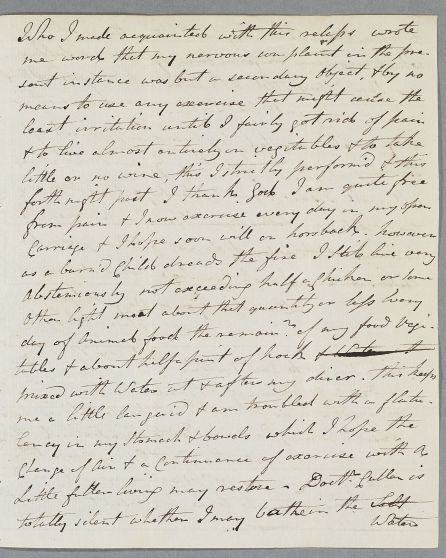 Who I made acquainted with this relaps wrote
me word that my nervous complaint in the pre-
sent instance was but a secondary object, & by no
means to use any exercise that might cause the
least irritation until I fairly got rid of pain
& to live almost entirely on vegitibles & to take
little or no wine, this I strictly perform'd & this
forthnight past I thank God I am quite free
from pain & I now exercise every day in my open
Carriage & I hope soon will on horsback. however
as a burn'd Child dreads the fire I still live very
Abstemiously not exceeding half a Chicken or some
other light meat about that quantity or less every
day of Animal food the remain.r of my food Vegi-
tibles & about half a pint of hock & Water
mixed with Water at & after my diner. this keeps
me a little languid & am troubled with a flatu-
lency in my Stomach & bowels which I hope the
Change of Air & a Continuance of exercise with a
Little fuller living may restore - Doctr. Cullen is
totally silent whether I may bathe in the Salt
Water